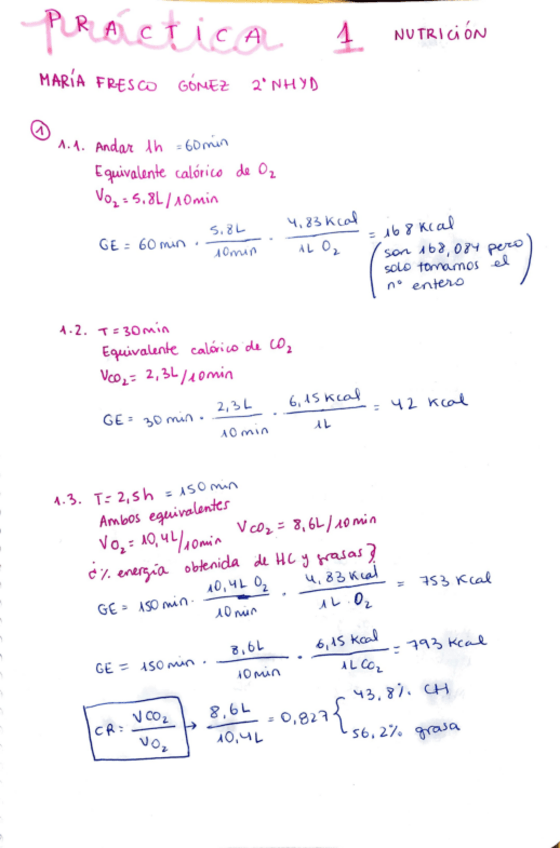 PRÁCTICA 1 NUTRICIÓN
práctica
MARÍA FRESCO GÓMEZ 2º NHYD
1
1.1. Andar 1h = 60min
Equivalente calórico de O₂
VO₂ = 5,8L/10min
GE = 60 min · 5,8L / 10min · 4,83 Kcal / 1L O₂ = 168 Kcal
(son 168,084 pero
solo tomamos el
nº entero)
1.2. T = 30min
Equivalente calórico de CO₂
VCO₂ = 2,3L/10min
GE = 30 min · 2,3L / 10 min · 6,15 Kcal / 1L = 42 Kcal
1.3. T = 2,5h = 150 min
Ambos equivalentes
VO₂ = 10,4L/10min VCO₂ = 8,6L/10 min
¿% energía obtenida de HC y grasas?
GE = 150 min · 10,4L O₂ / 10 min · 4,83 Kcal / 1L · O₂ = 753 Kcal
GE = 150 min · 8,6L / 10 min · 6,15 Kcal / 1L CO₂ = 793 Kcal
CR = VCO₂ / VO₂ → 8,6L / 10,4L = 0,827 { 43,8% CH
56,2% grasa